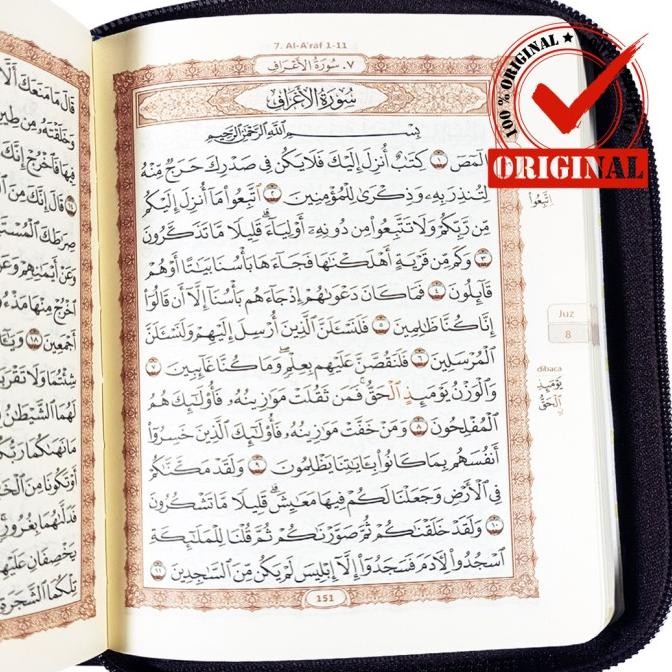 7. Al-A'raf 1-11
٧. سُورَةُ الْأَعْرَافِ
سُورَةُ الْأَعْرَافِ
بِسْمِ اللَّهِ الرَّحْمَٰنِ الرَّحِيمِ
الٓمٓصٓ ١ كِتَٰبٌ أُنزِلَ إِلَيْكَ فَلَا يَكُن فِي صَدْرِكَ حَرَجٌ مِّنْهُ
لِتُنذِرَ بِهِۦ وَذِكْرَىٰ لِلْمُؤْمِنِينَ ٢ اتَّبِعُوا۟ مَا أُنزِلَ إِلَيْكُم
مِّن رَّبِّكُمْ وَلَا تَتَّبِعُوا۟ مِن دُونِهِۦٓ أَوْلِيَآءَ ۗ قَلِيلًا مَّا تَذَكَّرُونَ
٣ وَكَم مِّن قَرْيَةٍ أَهْلَكْنَٰهَا فَجَآءَهَا بَأْسُنَا بَيَٰتًا أَوْ هُمْ
قَآئِلُونَ ٤ فَمَا كَانَ دَعْوَىٰهُمْ إِذْ جَآءَهُم بَأْسُنَآ إِلَّآ أَن قَالُوٓا۟
إِنَّا كُنَّا ظَٰلِمِينَ ٥ فَلَنَسْـَٔلَنَّ الَّذِينَ أُرْسِلَ إِلَيْهِمْ وَلَنَسْـَٔلَنَّ
الْمُرْسَلِينَ ٦ فَلَنَقُصَّنَّ عَلَيْهِم بِعِلْمٍ ۖ وَمَا كُنَّا غَآئِبِينَ ٧
وَالْوَزْنُ يَوْمَئِذٍ الْحَقُّ ۚ فَمَن ثَقُلَتْ مَوَٰزِينُهُۥ فَأُو۟لَٰٓئِكَ هُمُ
الْمُفْلِحُونَ ٨ وَمَنْ خَفَّتْ مَوَٰزِينُهُۥ فَأُو۟لَٰٓئِكَ الَّذِينَ خَسِرُوٓا۟
أَنفُسَهُم بِمَا كَانُوا۟ بِـَٔايَٰتِنَا يَظْلِمُونَ ٩ وَلَقَدْ مَكَّنَّٰكُمْ
فِي الْأَرْضِ وَجَعَلْنَا لَكُمْ فِيهَا مَعَٰيِشَ ۗ قَلِيلًا مَّا تَشْكُرُونَ
١٠ وَلَقَدْ خَلَقْنَٰكُمْ ثُمَّ صَوَّرْنَٰكُمْ ثُمَّ قُلْنَا لِلْمَلَٰٓئِكَةِ
اسْجُدُوا۟ لِـَٔادَمَ فَسَجَدُوٓا۟ إِلَّآ إِبْلِيسَ لَمْ يَكُن مِّنَ السَّٰجِدِينَ ١١
151
اتَّبِعُوا
Juz
8
dibaca
يَوْمَئِذٍ
الْحَقُّ
100 % ORIGINAL
ORIGINAL
قَالَ مَا مَنَعَكَ أَلَّا
وَخَلَقْتَهُۥ مِن طِينٍ
فِيهَا فَاخْرُجْ إِنَّكَ
قَالَ إِنَّكَ مِنَ
صِرَٰطَكَ الْمُسْتَ
وَعَنْ أَيْمَٰنِهِمْ وَعَن
اخْرُجْ مِنْهَا مَذْءُو
أَجْمَعِينَ ١٨ وَيَٰٓـَٔا
شِئْتُمَا وَلَا تَقْرَبَا
لَهُمَا الشَّيْطَٰنُ
مَا نَهَىٰكُمَا رَبُّكُ
أَوْ تَكُونَا مِنَ الْخَٰ
فَدَلَّىٰهُمَا بِغُرُورٍ
يَخْصِفَانِ عَلَيْهِ
تِلْكُمَا الشَّجَرَةِ